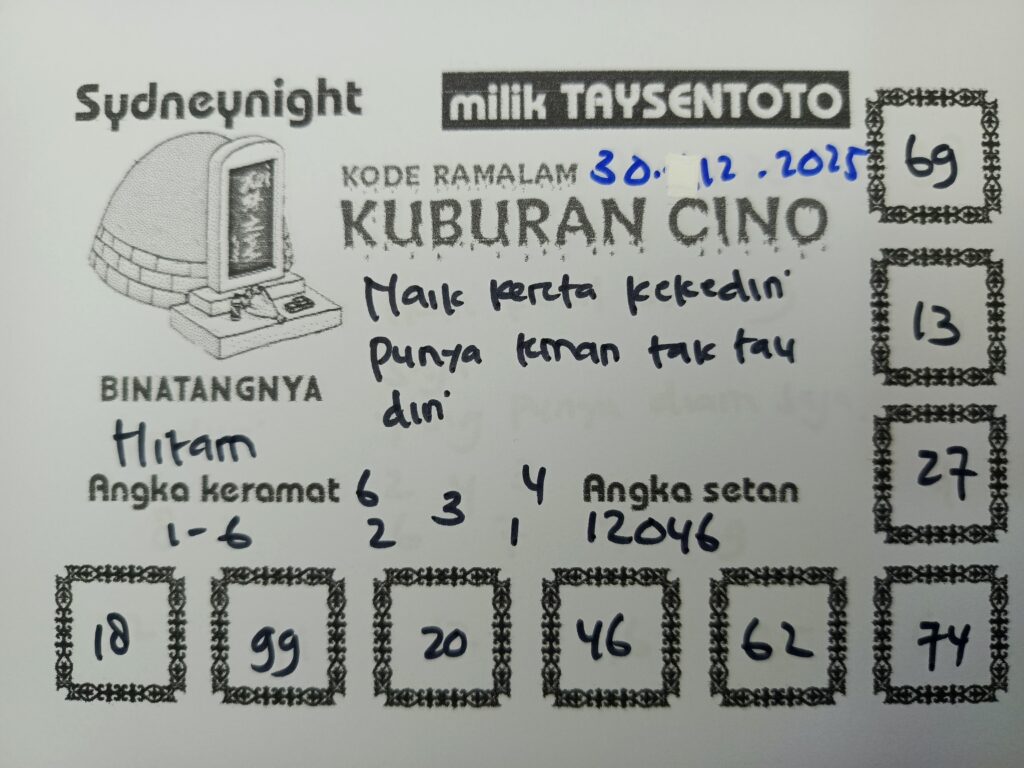 Sydneynight
milik TAYSENTOTO
KODE RAMALAM 30.12.2025
KUBURAN CINO
Naik kereta kekediri
punya teman tak tau
diri
BINATANGNYA
Hitam
Angka keramat
1-6
6 4
3
2 1
Angka setan
12046
69
13
27
18 99 20 46 62 74